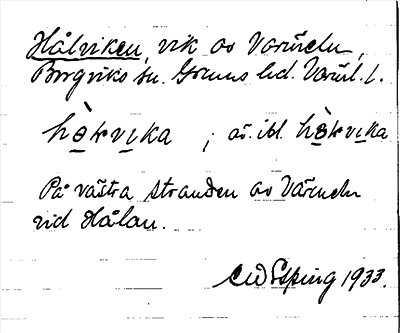 Hålviken, vik av Värmeln,
Borgviks sn. Grums hd. Värml. l.
hə̀kvika ; äv. ibl. hə̀kvika
På västra stranden av Värmeln
vid Hålan.
CW Esping 1933.